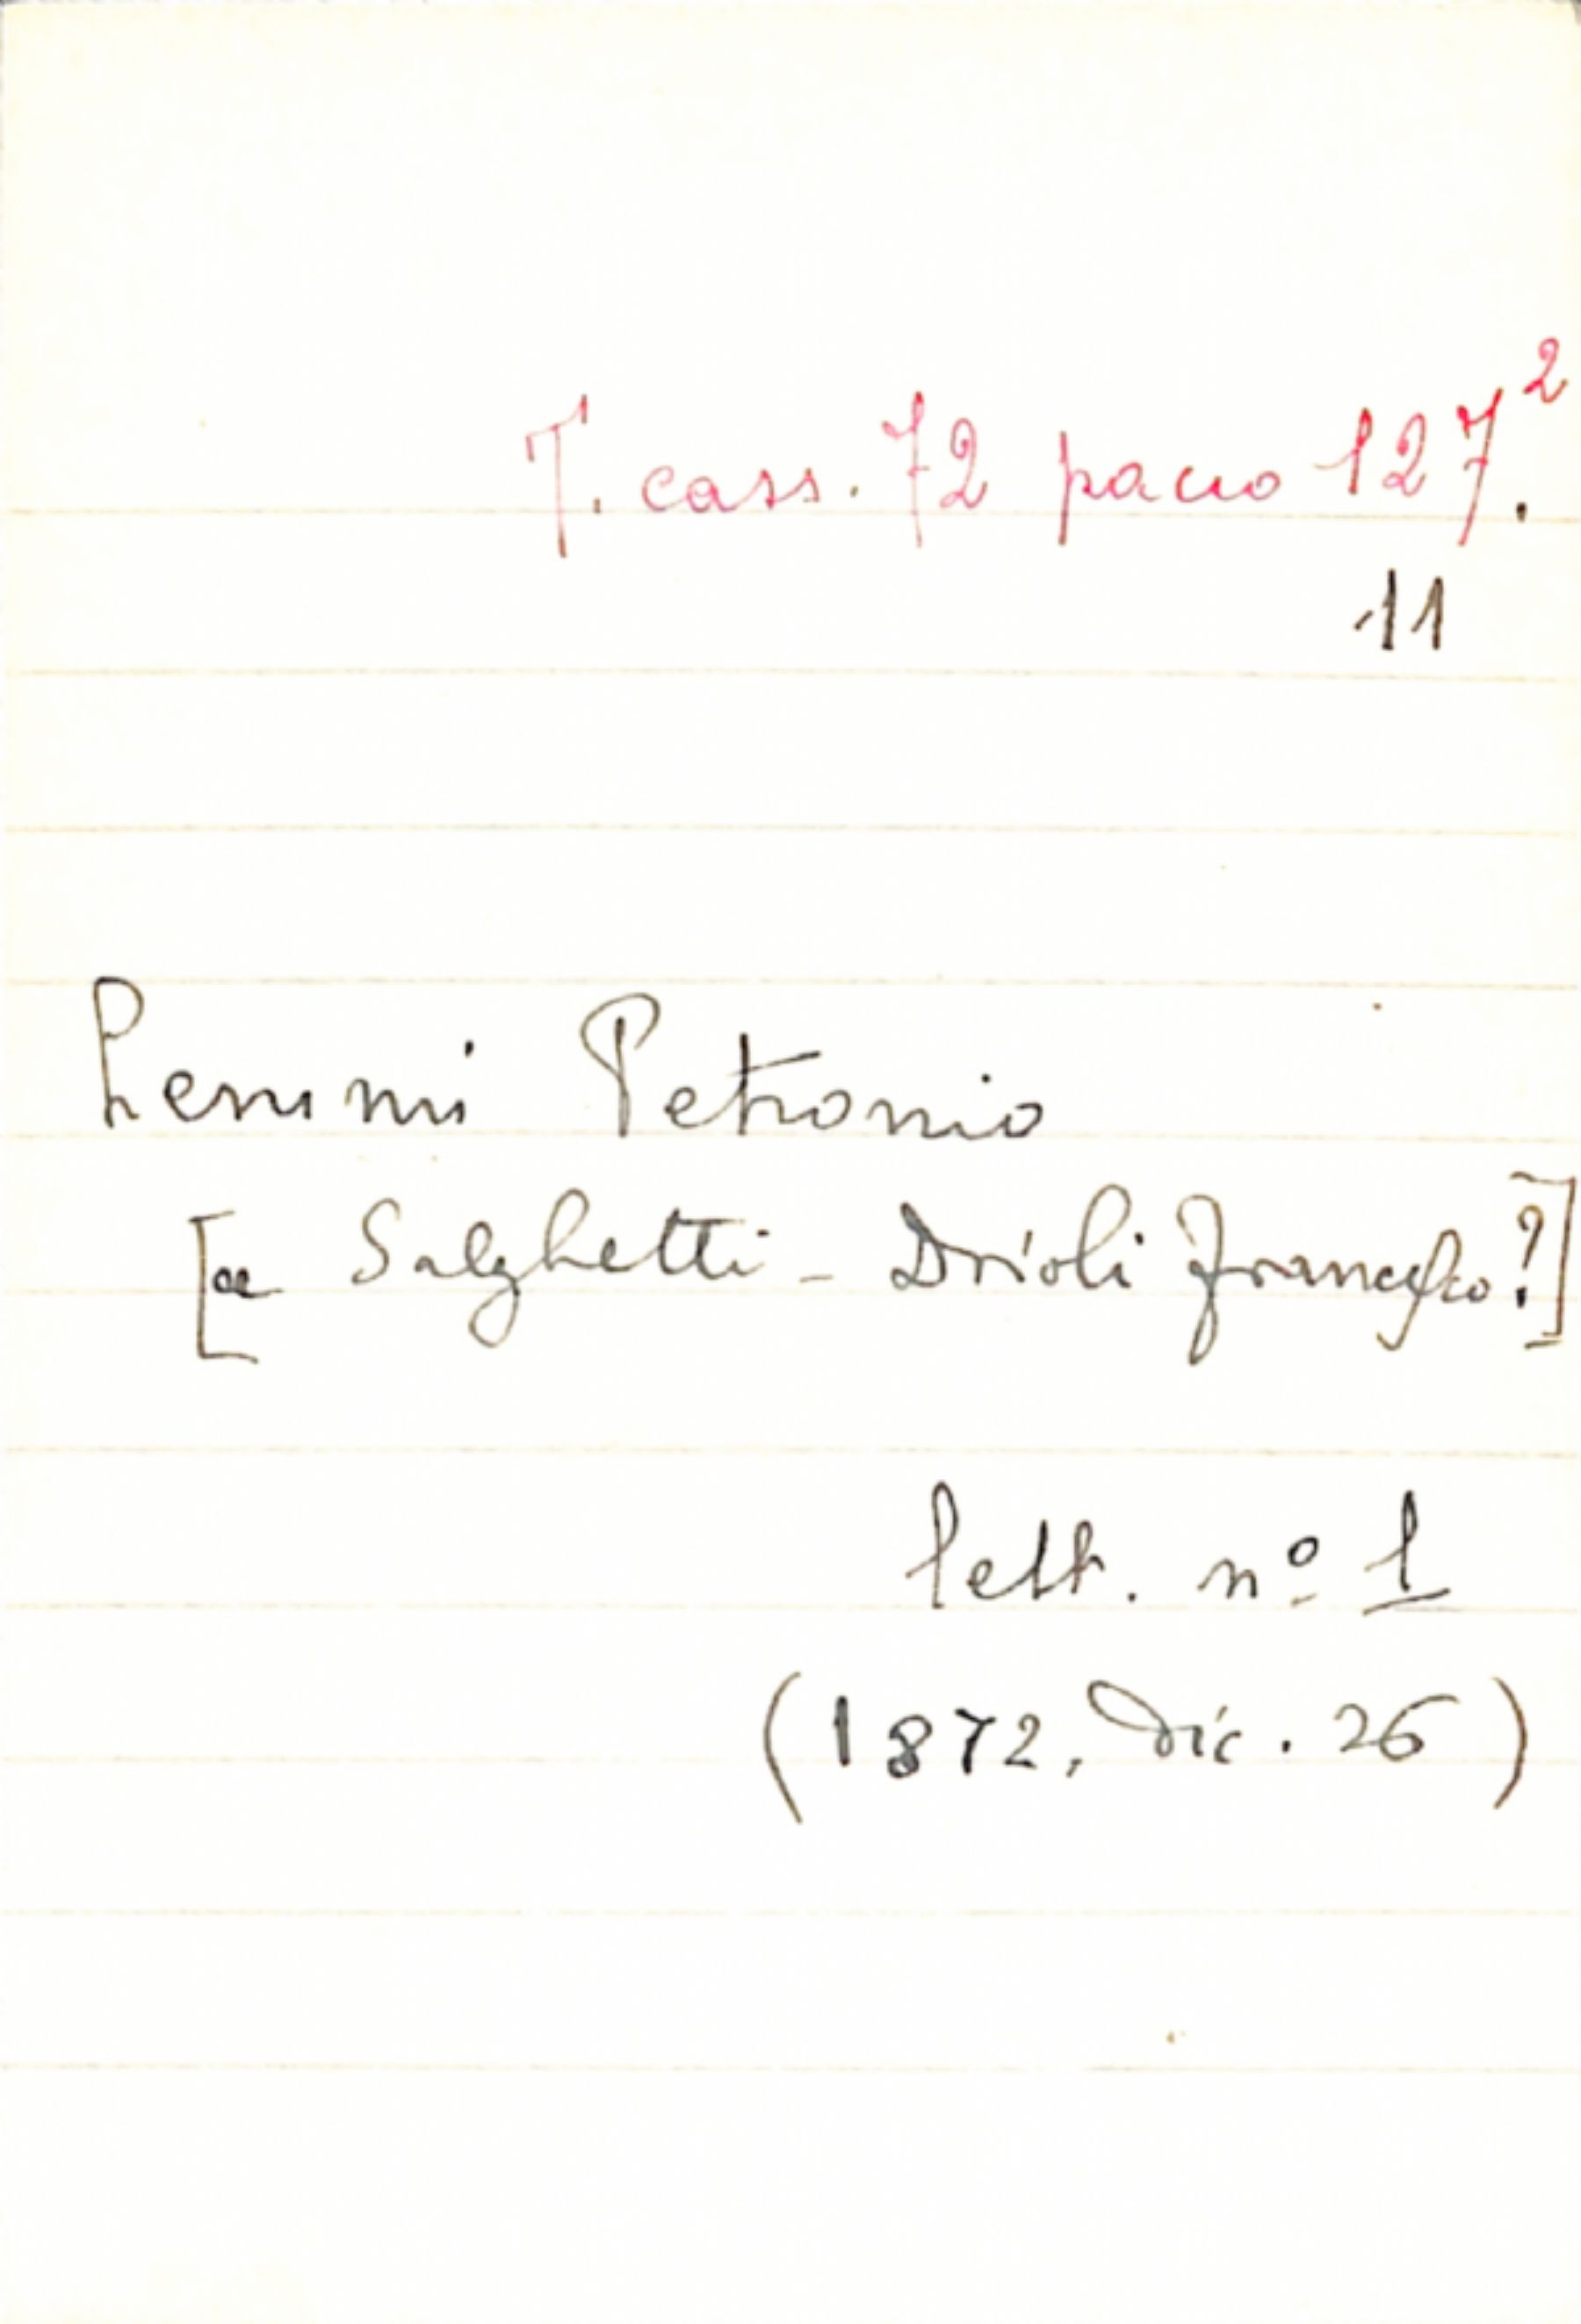 T. cass. 72 pacco 127.²
11
Lemmi Petronio
[a Salghetti - Drioli Francesco?]
lett. nº 1
(1872, dic. 26)